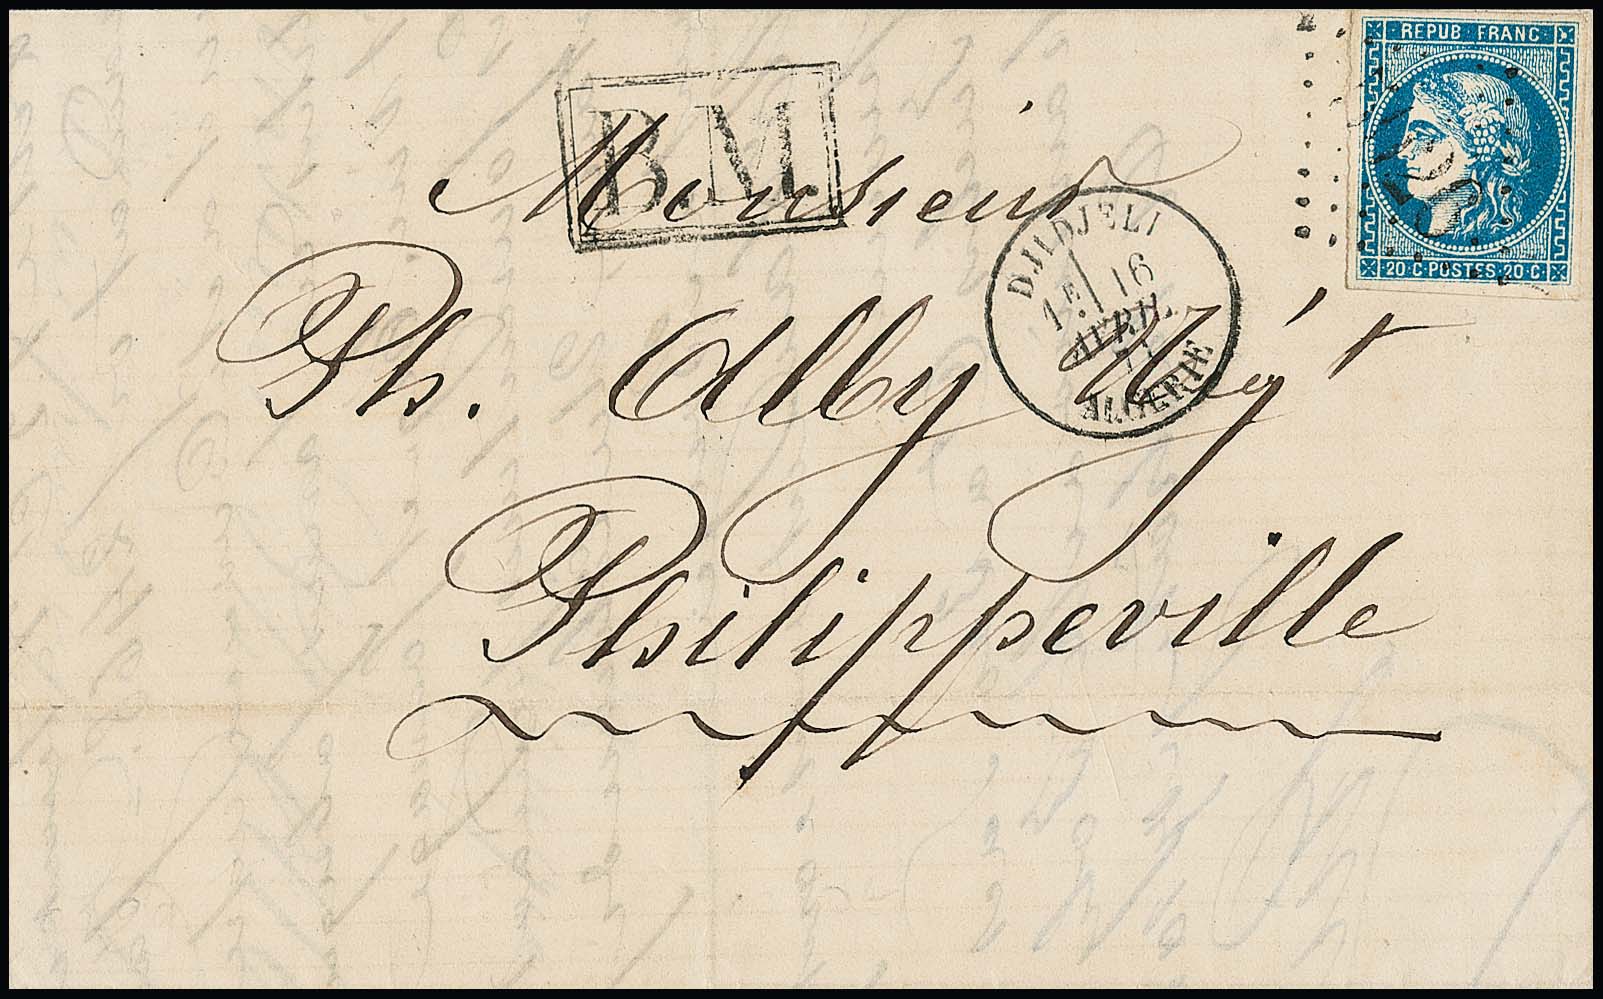 REPUB FRANC
B.M
Monsieur
DJIDJELI
1E 16
AVRIL
71
ALGERIE
20 C·POSTES·20 C·
Ph. Alby Nég't
Philippeville